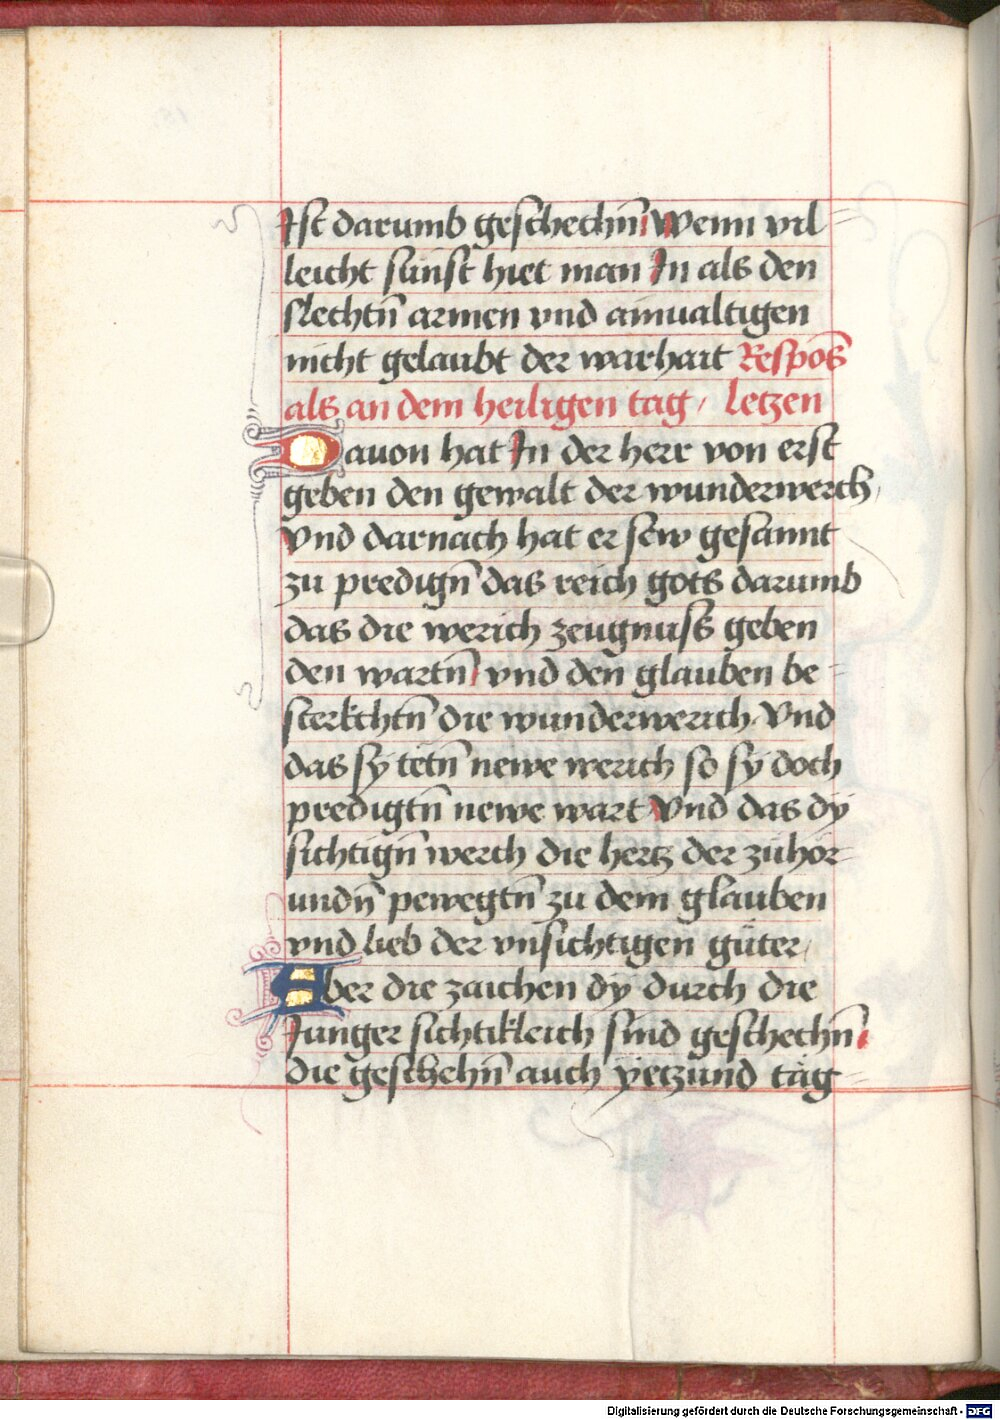 Ist darumb geschechn̄ Wenn vil=
leicht sünst hiet man In als den
slechtn̄ armen vnd ainualtigen
nicht gelaubt der warhait Respons̄
als an dem heiligen tag / letzen
Dauon hat In der herr von erst
geben den gewalt der wunderwerch,
Vnd darnach hat er sew gesannt
zu predign̄ das reich gots darumb
das die werich zeugnuss geben
den wartn̄ vnd den glauben be=
sterkchtn̄ die wunderwerich. Vnd
das sÿ tetn̄ newe werich so sÿ doch
predigtn̄ newe wart Vnd das dÿ
sichtign̄ werch die hertz der zuhör=
undn̄ pewegtn̄ zu dem glauben
vnd lieb der vnsichtigen güter,
Aber die zaichen dÿ durch die
Junger sichtikleich sind geschechn̄
die geschehn̄ auch ÿetzund täg=
Digitalisierung gefördert durch die Deutsche Forschungsgemeinschaft - DFG